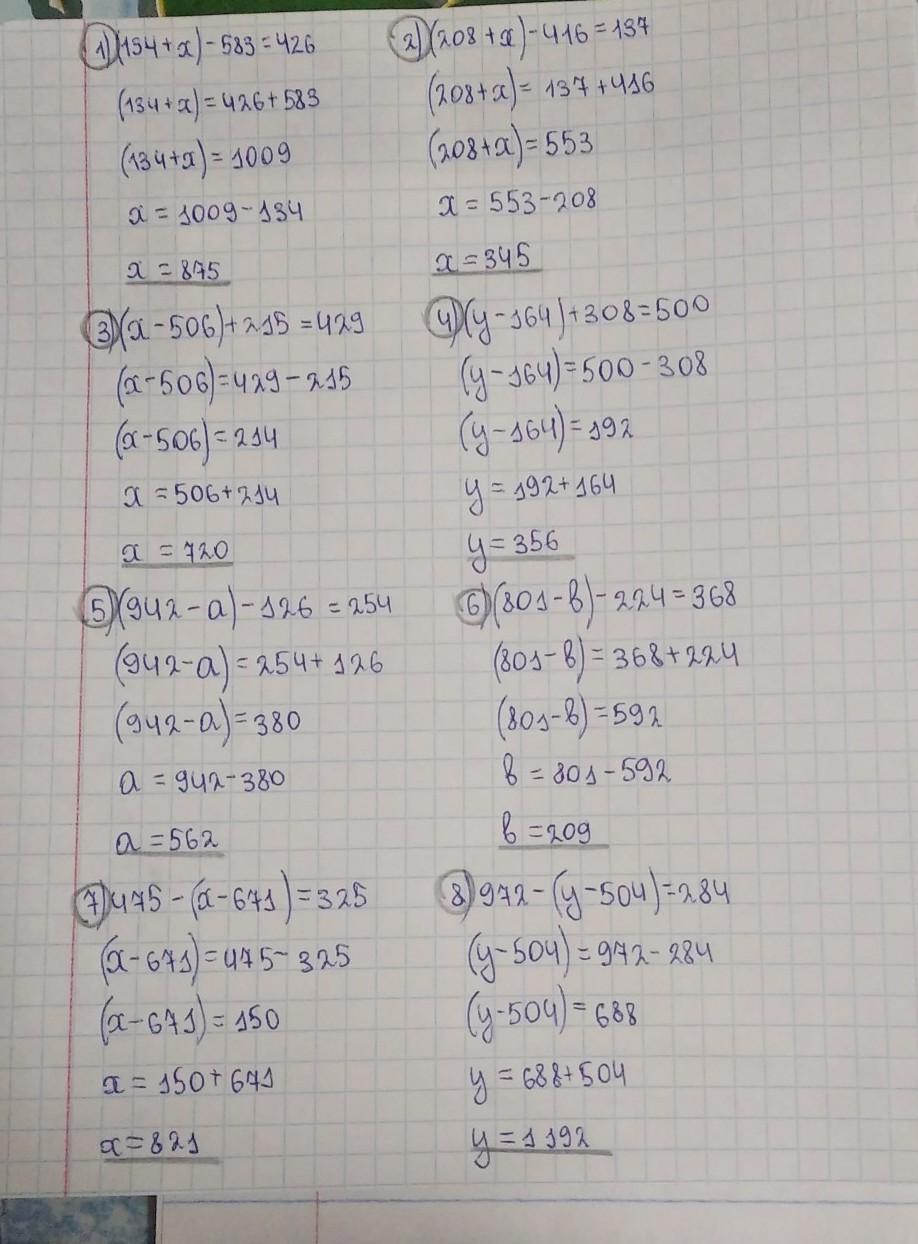 1) (134+x)-583=426
(134+x)=426+583
(134+x)=1009
x=1009-134
x=875
2) (208+x)-416=137
(208+x)=137+416
(208+x)=553
x=553-208
x=345
3) (x-506)+215=429
(x-506)=429-215
(x-506)=214
x=506+214
x=720
4) (y-164)+308=500
(y-164)=500-308
(y-164)=192
y=192+164
y=356
5) (942-a)-126=254
(942-a)=254+126
(942-a)=380
a=942-380
a=562
6) (801-в)-224=368
(801-в)=368+224
(801-в)=592
в=801-592
в=209
7) 475-(x-671)=325
(x-671)=475-325
(x-671)=150
x=150+671
x=821
8) 972-(y-504)=284
(y-504)=972-284
(y-504)=688
y=688+504
y=1192